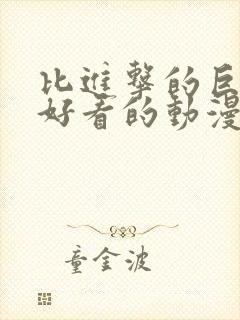 比進擊的巨
好看的動漫
童金波